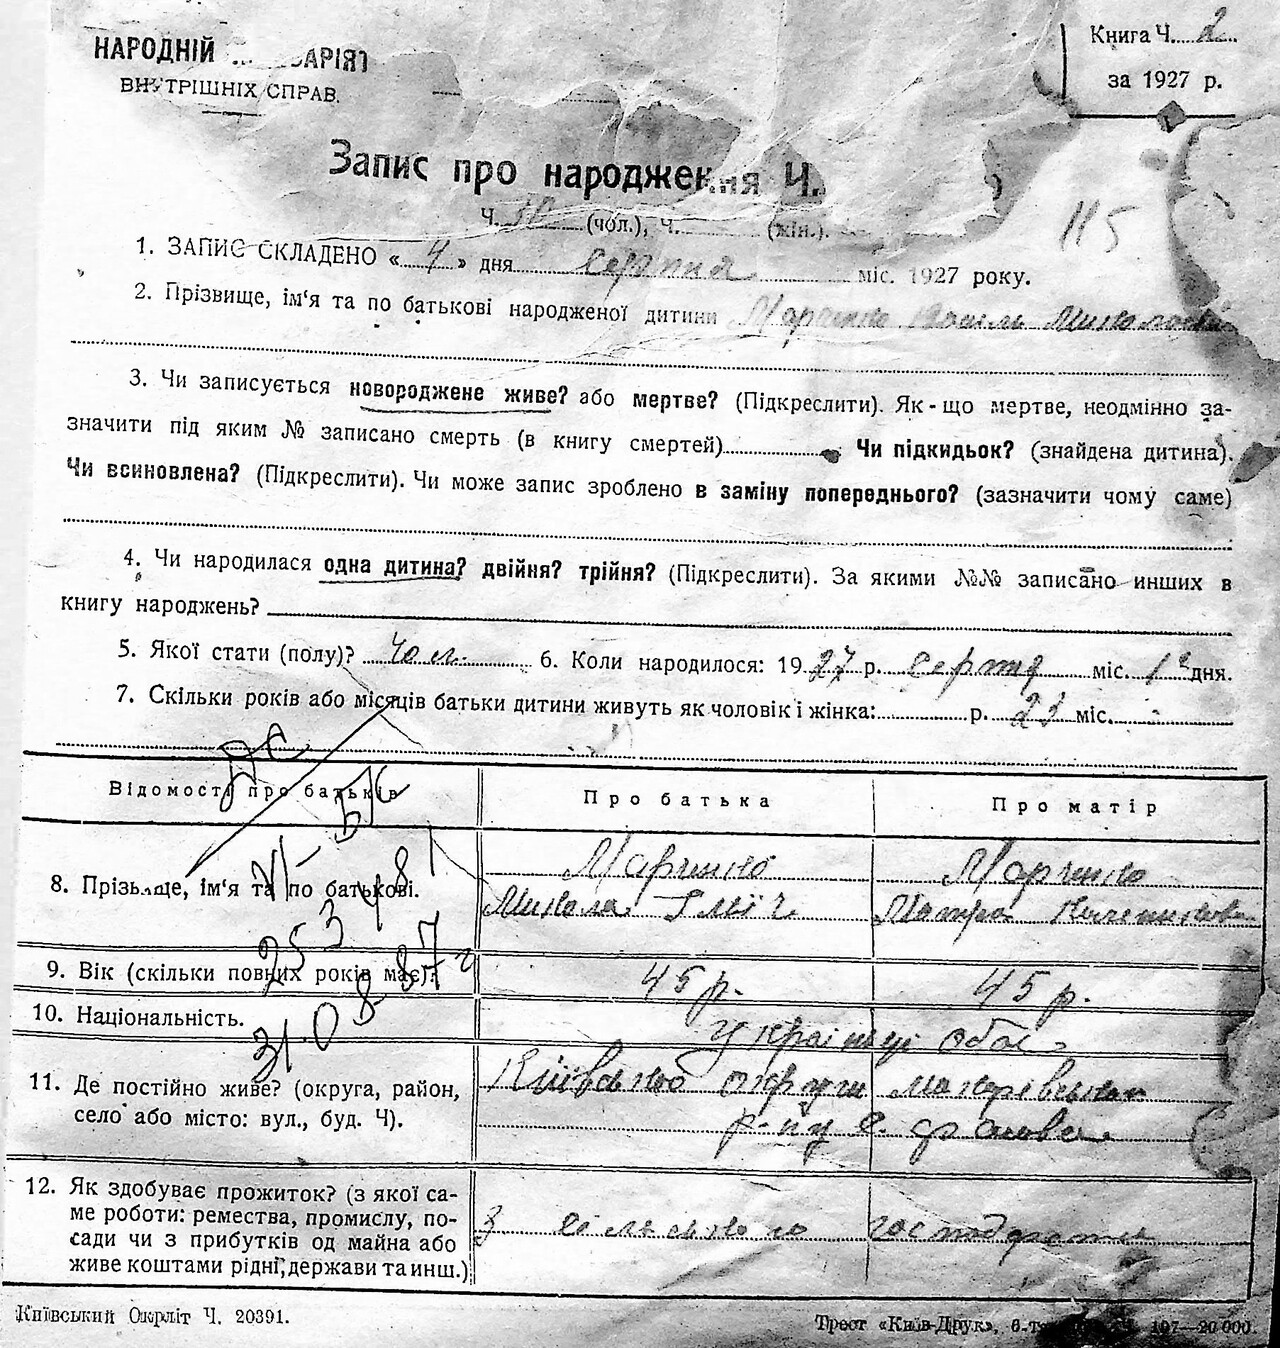 НАРОДНІЙ ... АРІЯТ
ВНУТРІШНІХ СПРАВ.
Книга Ч. 2
за 1927 р.
Запис про народження Ч.
115
Ч. (чол.), Ч. (жін.).
1. ЗАПИС СКЛАДЕНО « 4 » дня серпня міс. 1927 року.
2. Прізвище, ім‘я та по батькові народженої дитини Марченко Василь Миколаєв
3. Чи записується новороджене живе? або мертве? (Підкреслити). Як-що мертве, неодмінно за-
значити під яким № записано смерть (в книгу смертей) Чи підкидьок? (знайдена дитина).
Чи всиновлена? (Підкреслити). Чи може запис зроблено в заміну попереднього? (зазначити чому саме)
4. Чи народилася одна дитина? двійня? трійня? (Підкреслити). За якими №№ записано инших в
книгу народжень?
5. Якої стати (полу)? чол. 6. Коли народилося: 1927 р. серпня міс. 1 дня.
7. Скільки років або місяців батьки дитини живуть як чоловік і жінка: р. 23 міс.
Відомості про батьків
Про батька
Про матір
8. Прізвище, ім‘я та по батькові.
Марченко
Микола Ілліч
Марченко
Мотря
9. Вік (скільки повних років має)?
45 р.
45 р.
10. Національність.
Українці обоє
11. Де постійно живе? (округа, район,
село або місто: вул., буд. Ч).
Київської округи Макарівського
р-ну с.
12. Як здобуває прожиток? (з якої са-
ме роботи: ремества, промислу, по-
сади чи з прибутків од майна або
живе коштами рідні, держави та инш.)
З сільського господарства
II-БК
253481
31.08.87г
Київський Окрліт Ч. 20391.
Трест «Київ-Друк», 6-та 107—20000.